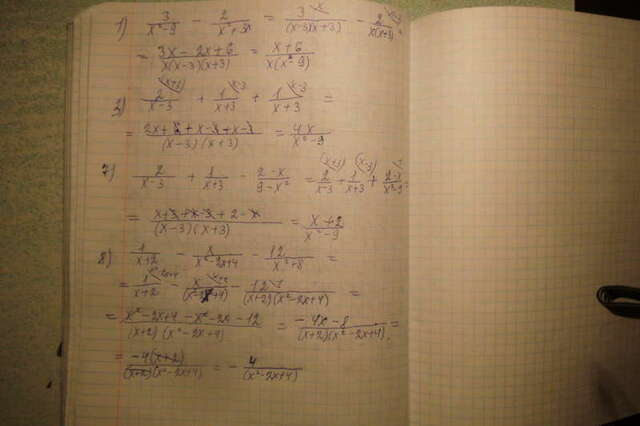 1) 3/(x²-9) - 2/(x²+3x) = 3/((x-3)(x+3)) - 2/(x(x+3)) =
= (3x-2x+6)/(x(x-3)(x+3)) = (x+6)/(x(x²-9))
2/(x-3) + 1/(x+3) + 1/(x+3) =
= /((x-3)(x+3)) = 4x/(x²-9)
7) 2/(x-3) + 1/(x+3) - (2-x)/(9-x²) = 2/(x-3) + 1/(x+3) + (2-x)/(x²-9)
= /((x-3)(x+3)) = (x+2)/(x²-9)
8) 1/(x+2) - x/(x²-2x+4) - 12/(x³+8) =
= 1/(x+2) - x/(x²-2x+4) - 12/((x+2)(x²-2x+4)) =
= (x²-2x+4-x²-2x-12)/((x+2)(x²-2x+4)) = (-4x-8)/((x+2)(x²-2x+4)) =
= -4(x+2)/((x+2)(x²-2x+4)) = - 4/(x²-2x+4)